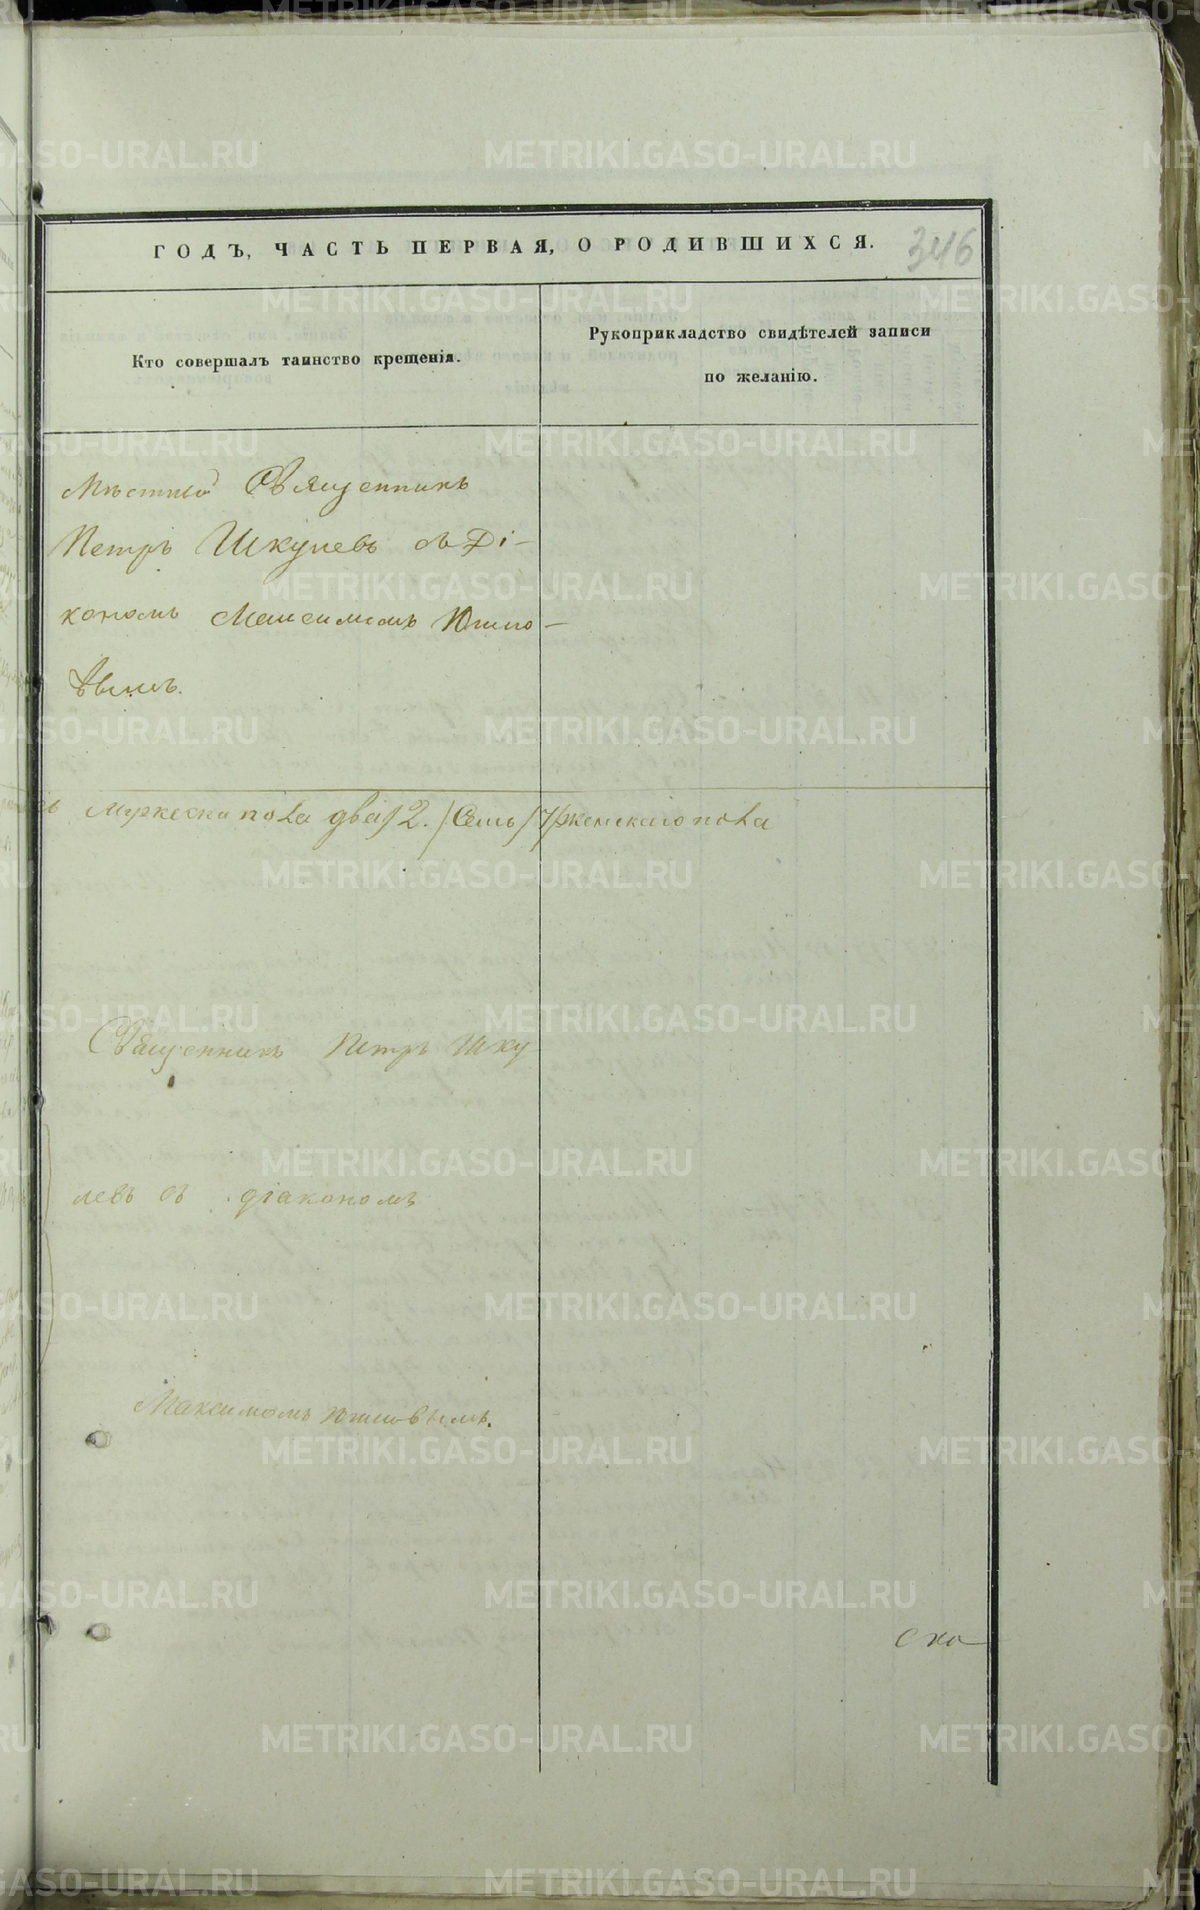 ГОДЪ, ЧАСТЬ ПЕРВАЯ, О РОДИВШИХСЯ.
346
Кто совершалъ таинство крещенія.
Рукоприкладство свидѣтелей записи
по желанію.
Мѣстный Священникъ
Петръ Шкулевъ съ Ді-
кономъ Максимомъ
пола два /2./ Семь /7/ женскаго пола
Священникъ Петръ Шку
левъ съ діакономъ
Максимомъ
METRIKI.GASO-URAL.RU